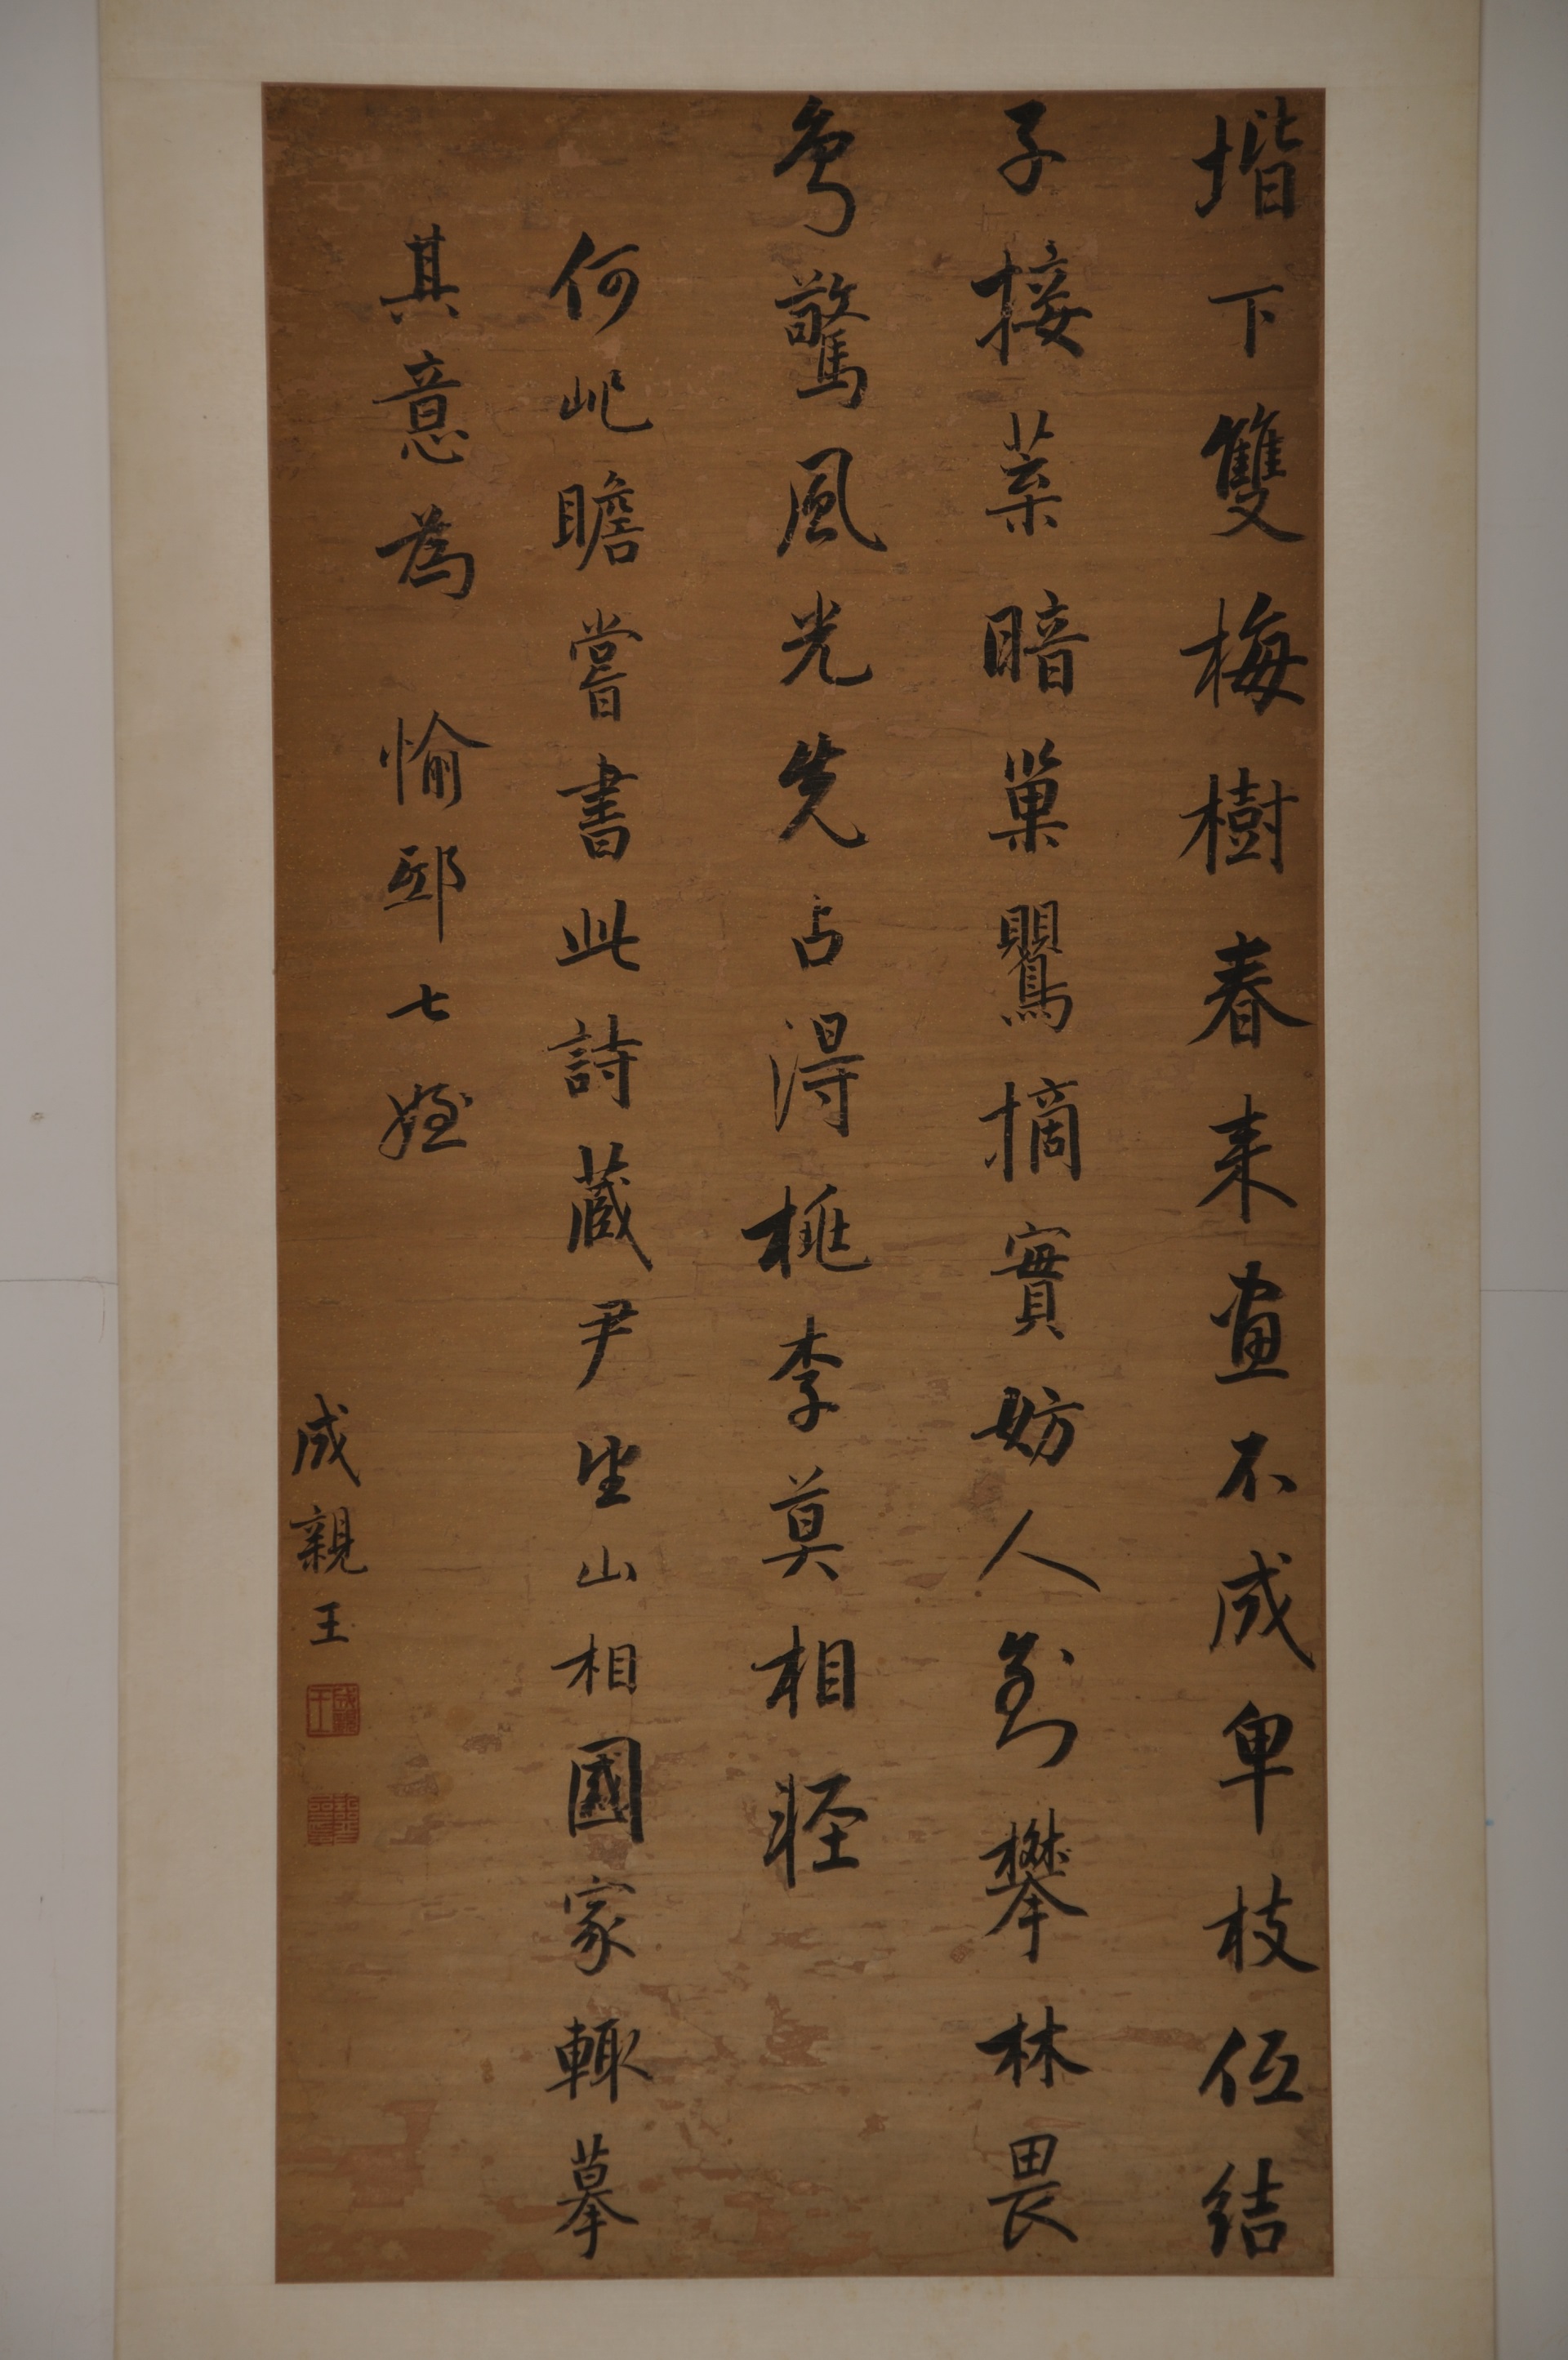 堦下雙梅樹春来畫不成卑枝低結
子接葉暗巢鸎摘實妨人到攀林畏
鳥驚風光先占得桃李莫相輕
何屺瞻嘗書此詩藏尹望山相國家輒摹
其意為 愉邸七姪
成親王